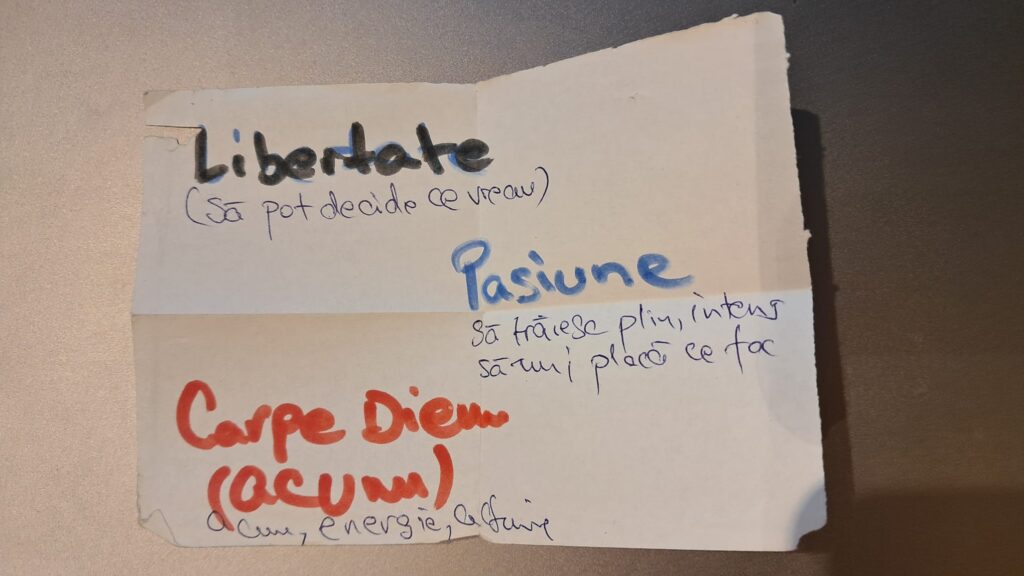 Libertate
(să pot decide ce vreau)
Pasiune
să trăiesc plin, intens
să-mi placă ce fac
Carpe Diem
(acum)
acum, energie,